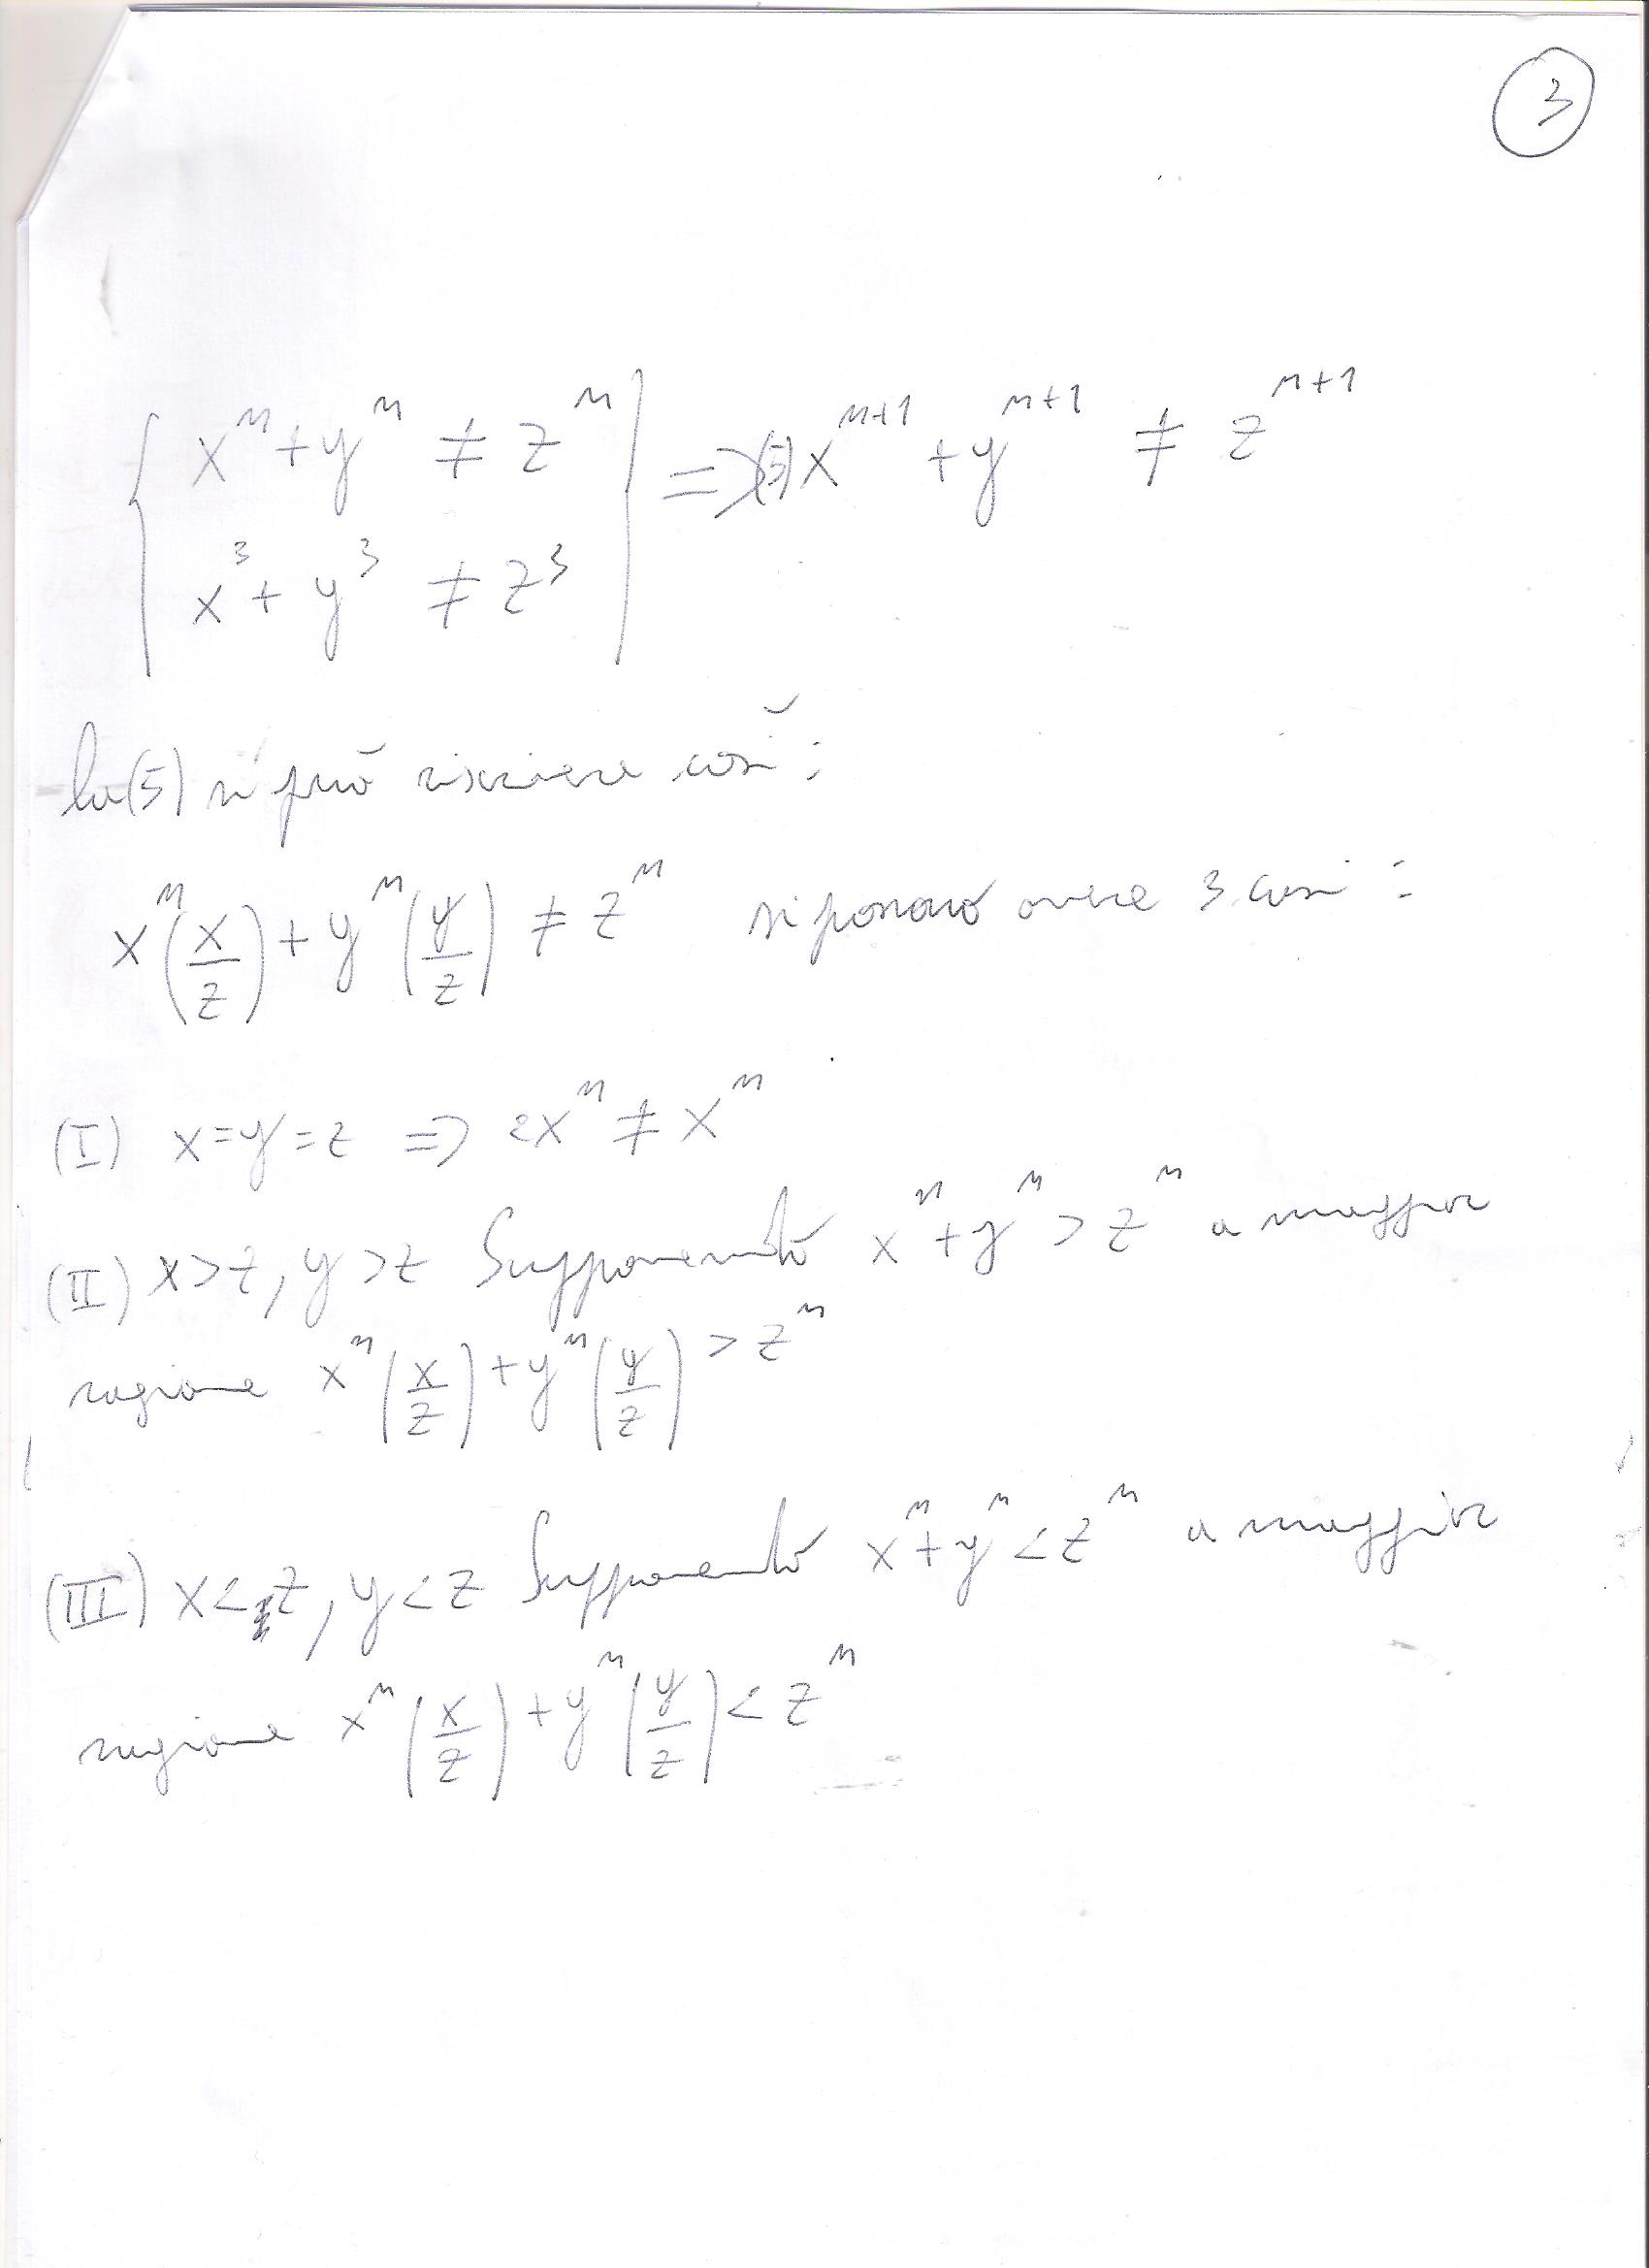 3
xⁿ + yⁿ ≠ zⁿ => (5) xⁿ⁺¹ + yⁿ⁺¹ ≠ zⁿ⁺¹
x³ + y³ ≠ z³
la (5) si può riscrivere così:
xⁿ(x/z) + yⁿ(y/z) ≠ zⁿ si possono avere 3 casi:
(I) x=y=z => 2xⁿ ≠ xⁿ
(II) x>z, y>z Supponendo xⁿ+yⁿ > zⁿ a maggior
ragione xⁿ(x/z) + yⁿ(y/z) > zⁿ
(III) x<z, y<z Supponendo xⁿ+yⁿ < zⁿ a maggior
ragione xⁿ(x/z) + yⁿ(y/z) < zⁿ